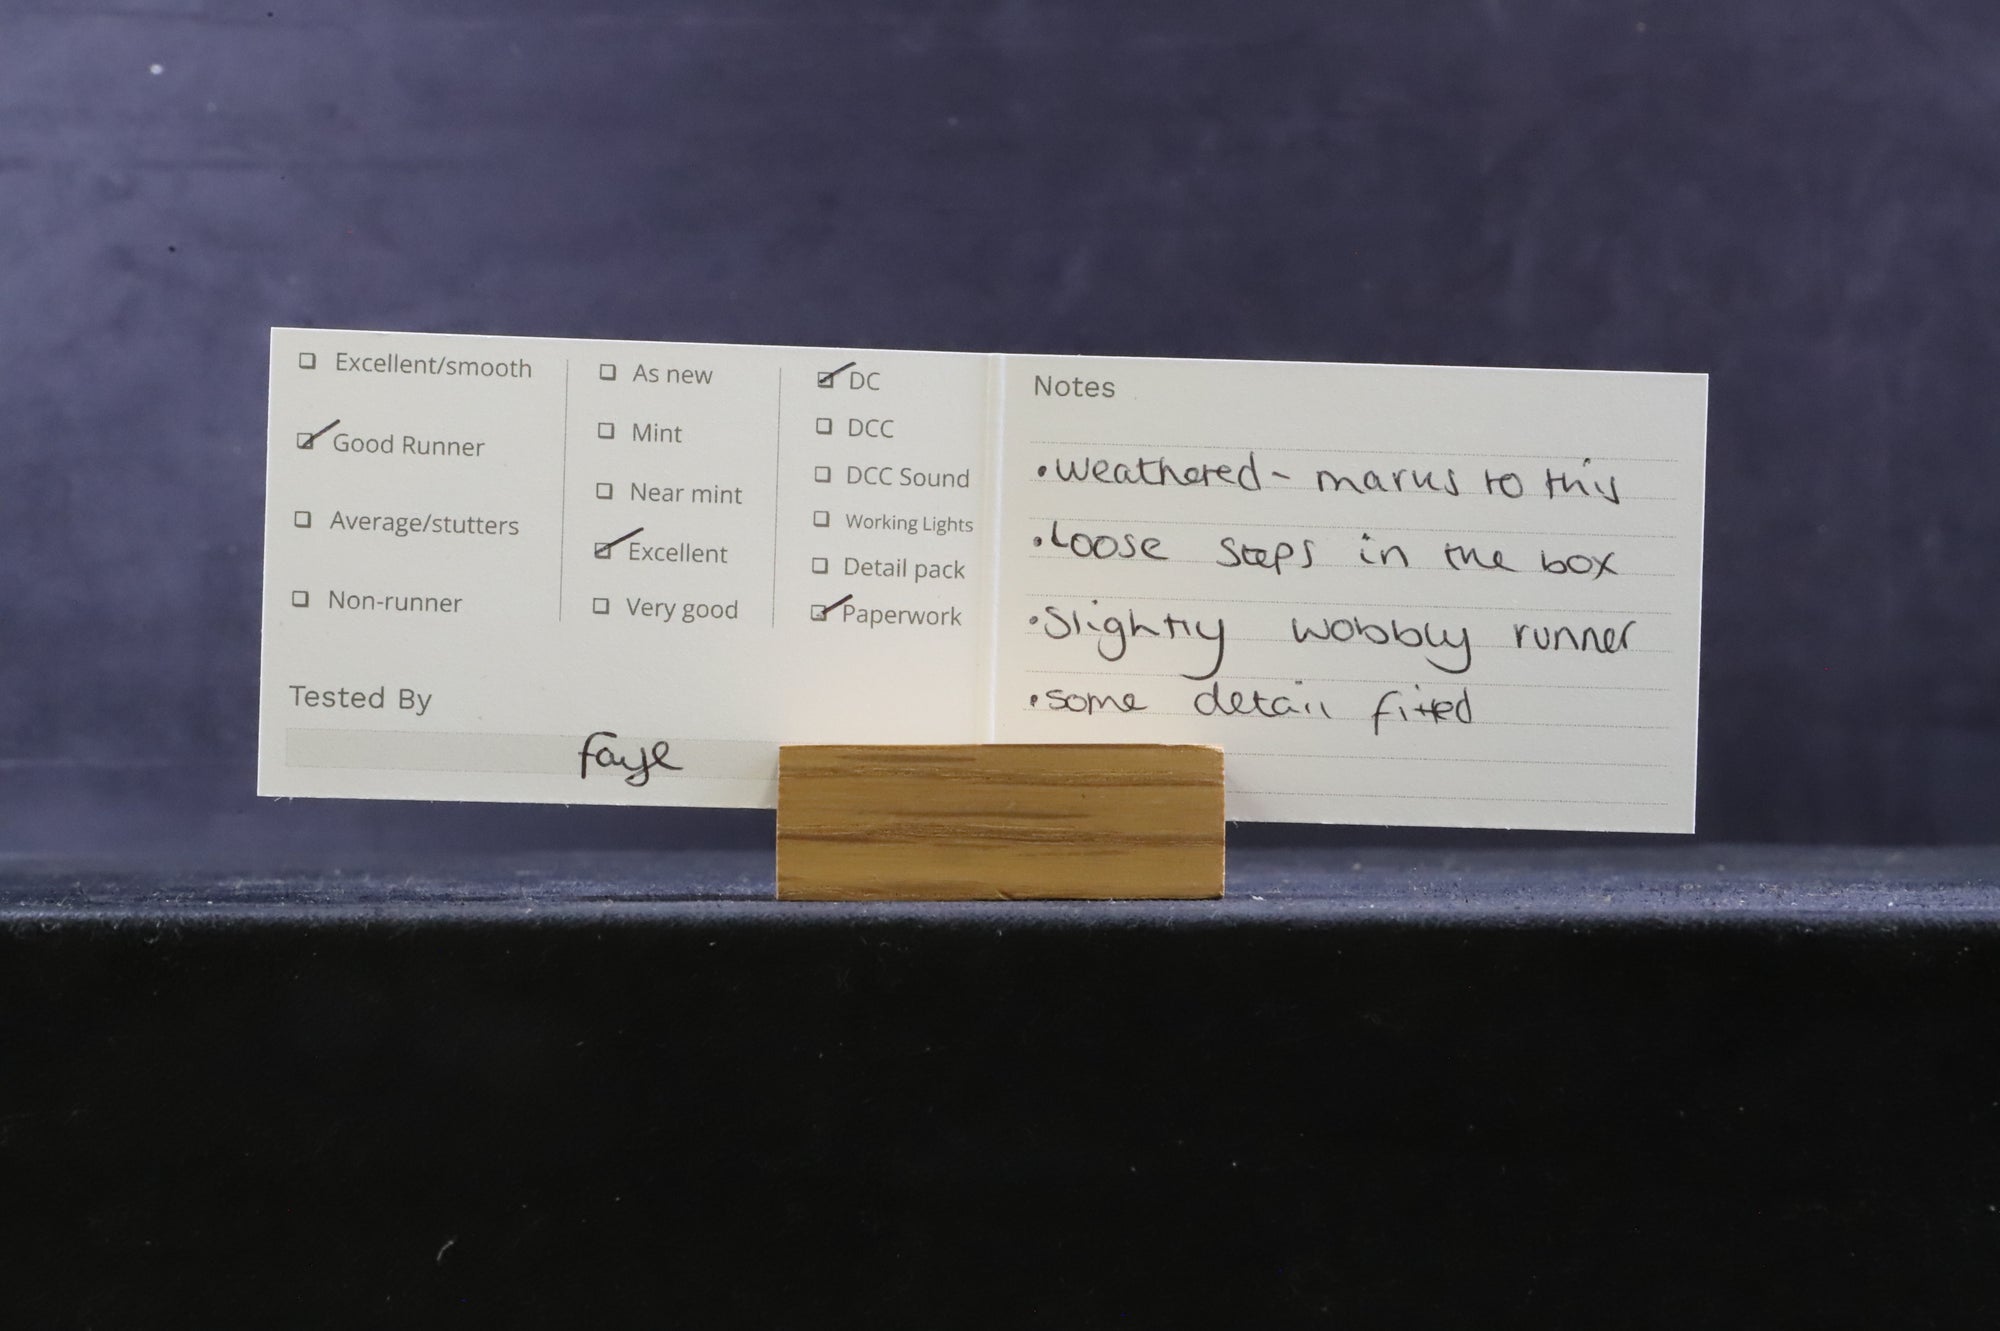 Excellent/smooth
Good Runner
Average/stutters
Non-runner
As new
Mint
Near mint
Excellent
Very good
DC
DCC
DCC Sound
Working Lights
Detail pack
Paperwork
Tested By
faye
Notes
•weathered - marks to this
•Loose steps in the box
•Slightly wobbly runner
•some detail fitted